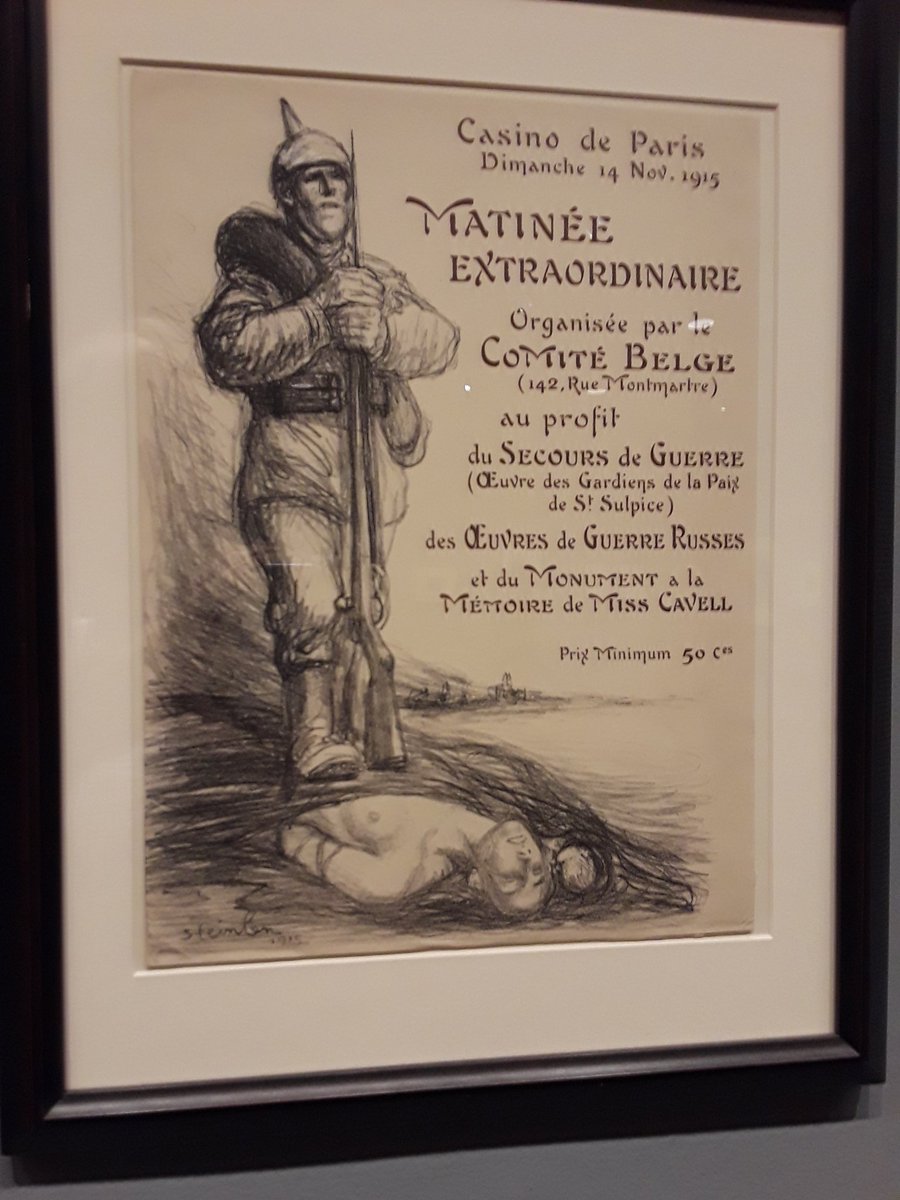 Casino de Paris
Dimanche 14 Nov. 1915
MATINÉE
EXTRAORDINAIRE
Organisée par le
COMITÉ BELGE
(142, Rue Montmartre)
au profit
du SECOURS de GUERRE
(Œuvre des Gardiens de la Paix
de St Sulpice)
des ŒUVRES de GUERRE RUSSES
et du MONUMENT a la
MÉMOIRE de MISS CAVELL
Prix Minimum 50 Ces
Steinlen
1915